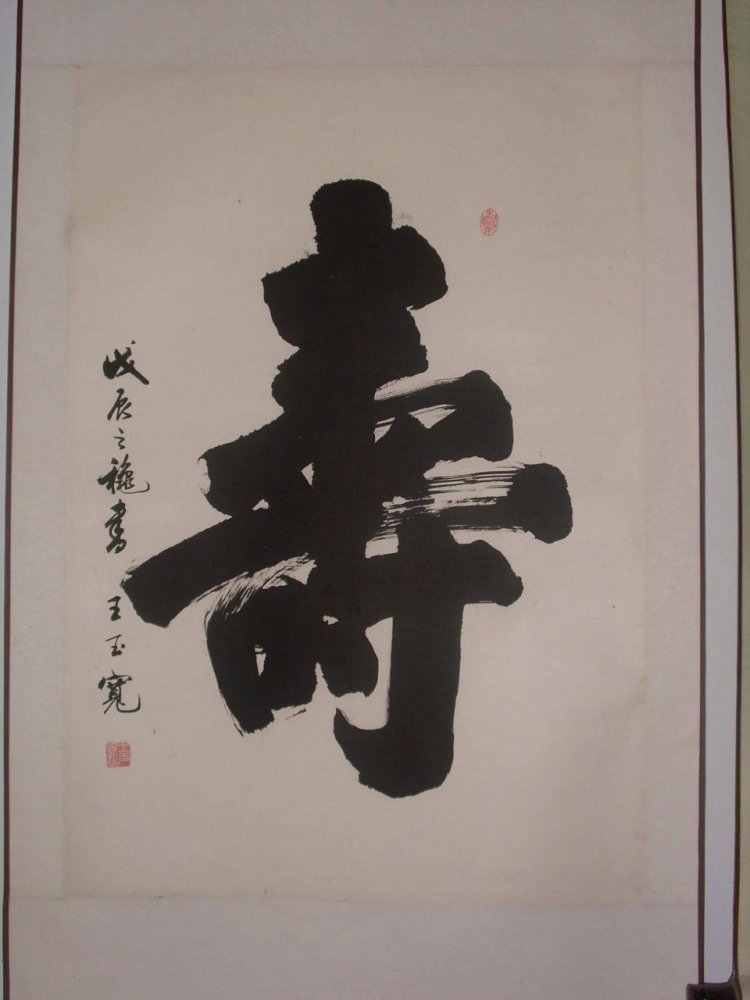 壽
戊辰之龝書 王玉寬